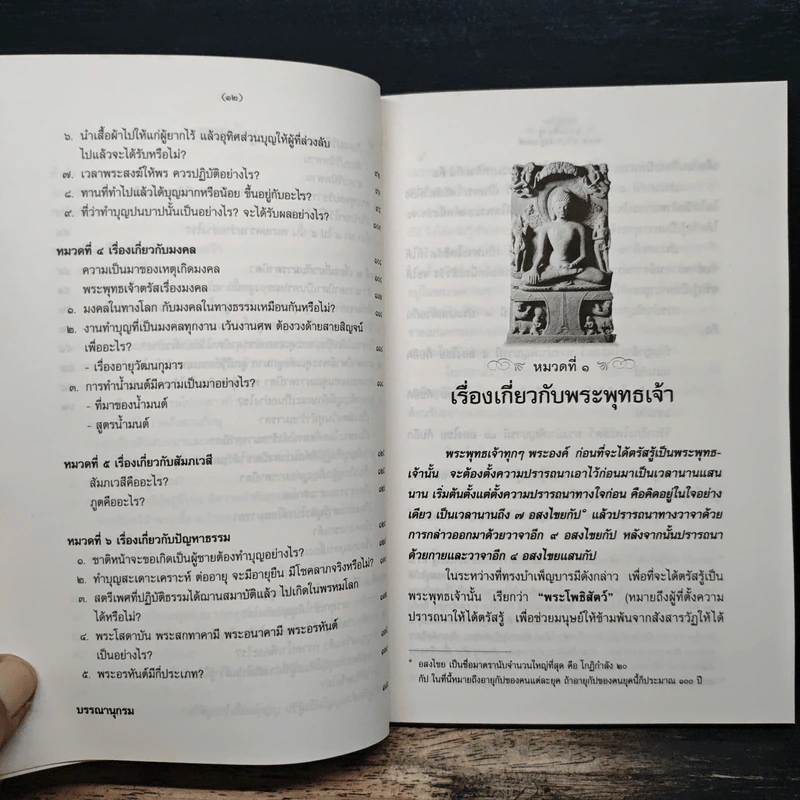 (๑๒)
๖. นำเสื้อผ้าไปให้แก่ผู้ยากไร้ แล้วอุทิศส่วนบุญให้ผู้ที่ล่วงลับ
ไปแล้วจะได้รับหรือไม่?
๗. เวลาพระสงฆ์ให้พร ควรปฏิบัติอย่างไร?
๘. ทานที่ทำไปแล้วได้บุญมากหรือน้อย ขึ้นอยู่กับอะไร?
๙. ที่ว่าทำบุญปนบาปนั้นเป็นอย่างไร? จะได้รับผลอย่างไร?
หมวดที่ ๔ เรื่องเกี่ยวกับมงคล
ความเป็นมาของเหตุเกิดมงคล
พระพุทธเจ้าตรัสเรื่องมงคล
๑. มงคลในทางโลก กับมงคลในทางธรรมเหมือนกันหรือไม่?
๒. งานทำบุญที่เป็นมงคลทุกงาน เว้นงานศพ ต้องวงด้ายสายสิญจน์
เพื่ออะไร?
- เรื่องอายุวัฒนกุมาร
๓. การทำน้ำมนต์มีความเป็นมาอย่างไร?
- ที่มาของน้ำมนต์
- สูตรน้ำมนต์
หมวดที่ ๕ เรื่องเกี่ยวกับสัมภเวสี
สัมภเวสีคืออะไร?
ภูตคืออะไร?
หมวดที่ ๖ เรื่องเกี่ยวกับปัญหาธรรม
๑. ชาติหน้าจะขอเกิดเป็นผู้ชายต้องทำบุญอย่างไร?
๒. ทำบุญสะเดาะเคราะห์ ต่ออายุ จะมีอายุยืน มีโชคลาภจริงหรือไม่?
๓. สตรีเพศที่ปฏิบัติธรรมได้ฌานสมาบัติแล้ว ไปเกิดในพรหมโลก
ได้หรือไม่?
๔. พระโสดาบัน พระสกทาคามี พระอนาคามี พระอรหันต์
เป็นอย่างไร?
๕. พระอรหันต์มีกี่ประเภท?
บรรณานุกรม
หมวดที่ ๑
เรื่องเกี่ยวกับพระพุทธเจ้า
พระพุทธเจ้าทุกๆ พระองค์ ก่อนที่จะได้ตรัสรู้เป็นพระพุทธ-
เจ้านั้น จะต้องตั้งความปรารถนาเอาไว้ก่อนมาเป็นเวลานานแสน
นาน เริ่มต้นตั้งแต่ตั้งความปรารถนาทางใจก่อน คือคิดอยู่ในใจอย่าง
เดียว เป็นเวลานานถึง ๗ อสงไขยกัป* แล้วปรารถนาทางวาจาด้วย
การกล่าวออกมาด้วยวาจาอีก ๙ อสงไขยกัป หลังจากนั้นปรารถนา
ด้วยกายและวาจาอีก ๔ อสงไขยแสนกัป
ในระหว่างที่ทรงบำเพ็ญบารมีดังกล่าว เพื่อที่จะได้ตรัสรู้เป็น
พระพุทธเจ้านั้น เรียกว่า “พระโพธิสัตว์” (หมายถึงผู้ที่ตั้งความ
ปรารถนาให้ได้ตรัสรู้ เพื่อช่วยมนุษย์ให้ข้ามพ้นจากสังสารวัฏให้ได้
* อสงไขย เป็นชื่อมาตรานับจำนวนใหญ่ที่สุด คือ โกฏิกำลัง ๒๐
กัป ในที่นี้หมายถึงอายุกัปของคนแต่ละยุค ถ้าอายุกัปของคนยุคนี้ก็ประมาณ ๑๐๐ ปี